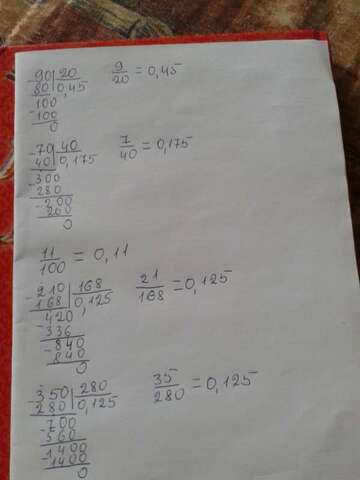 90 | 20
80 | 0,45
100
-100
0
9/20 = 0,45
-70 | 40
40 | 0,175
-300
280
-200
200
0
7/40 = 0,175
11/100 = 0,11
-210 | 168
168 | 0,125
-420
336
-840
840
0
21/168 = 0,125
-350 | 280
280 | 0,125
-700
560
-1400
1400
0
35/280 = 0,125